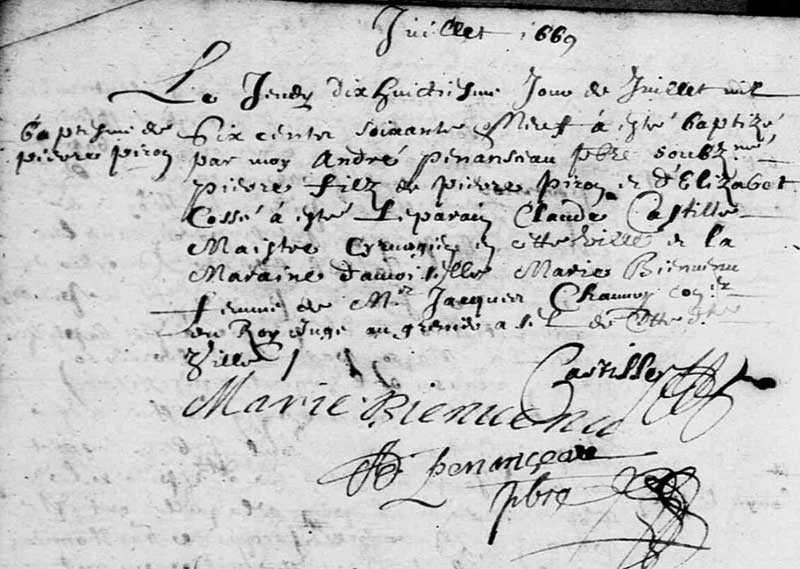 Juillet 1669
Le Jeudy dix huictiesme Jour de Juillet mil
baptesme de
pierre piron
six cents soixante Neuf à esté baptizé
par moy André penanseau pbre soubz.né
pierre filz de pierre piron et d'Elizabet
Cossé à esté le parain Claude Castille
Maistre cyrurgien en cette ville et la
Maraine damoiselle Marie Bienvenu
femme de Mr Jacques Chauvet coner
du Roy Juge au grenier a sel de cette dte
Ville
Castille
Marie Bienvenu
A. penanceau
pbre